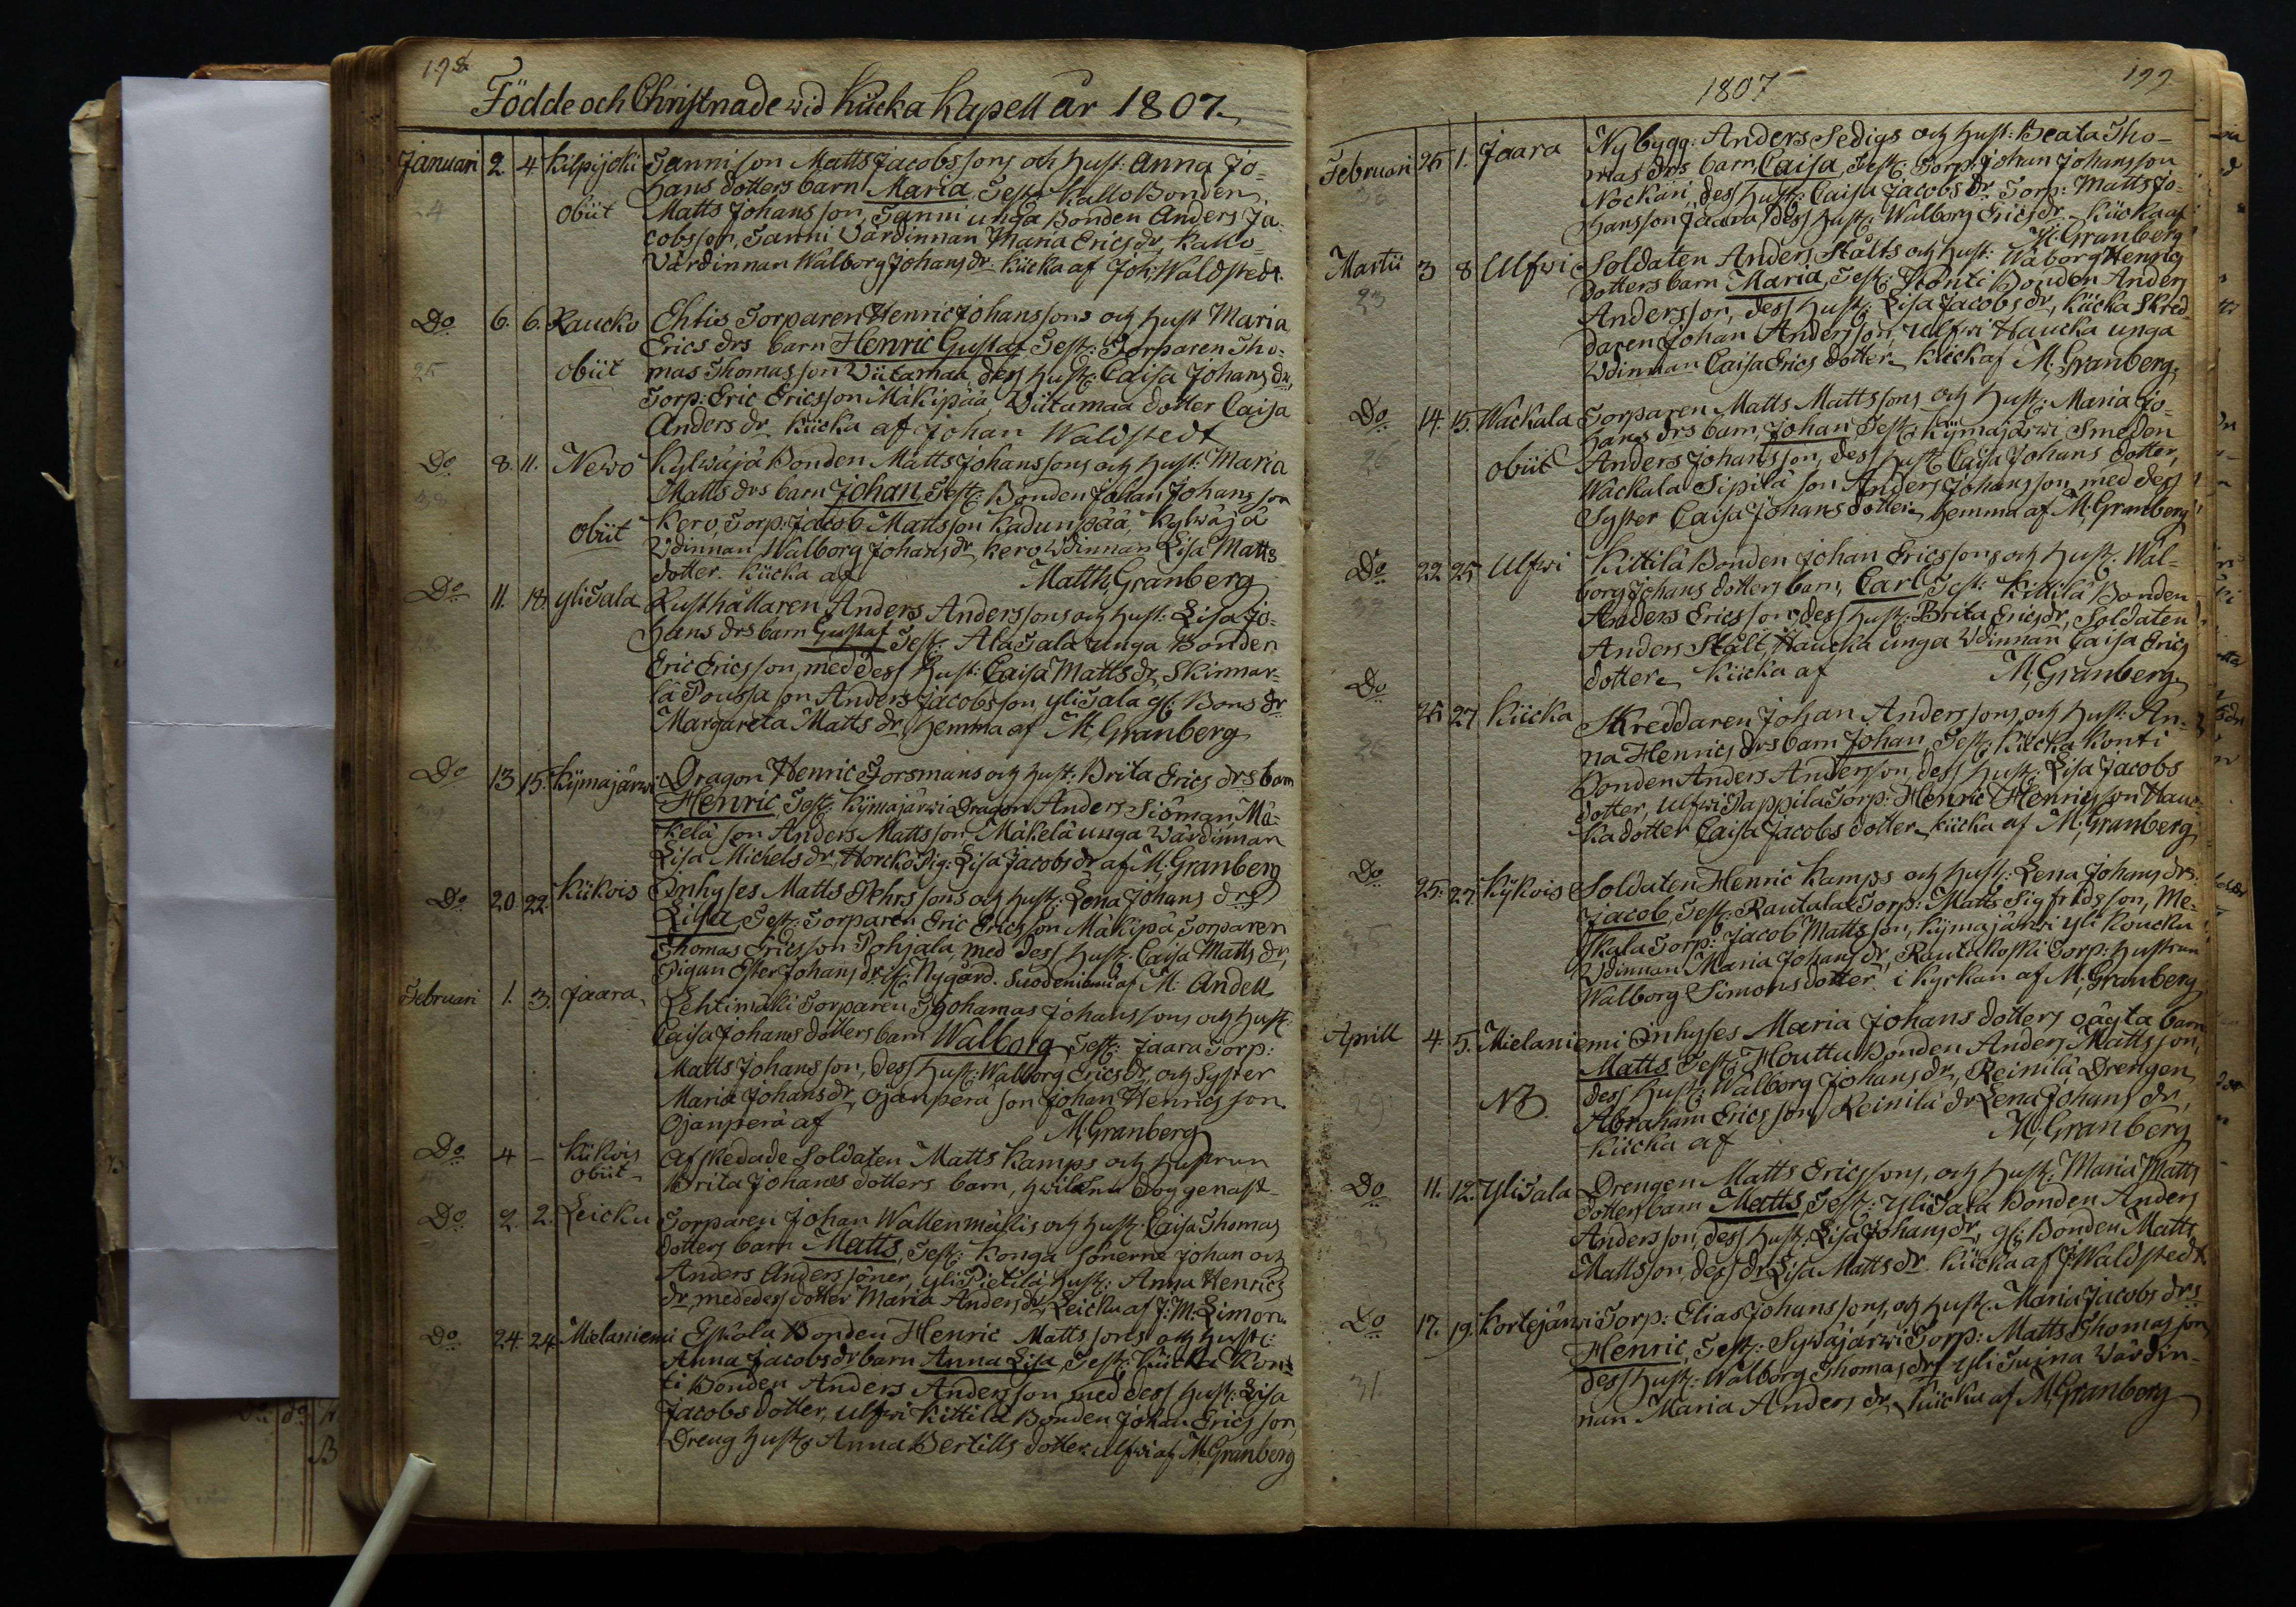 198
Födde och Christnade wid Kücka Kapell år 1807.
Januari 2 4 Kilpijoki Sannison Matts Jacobssons och Hust: Anna Jo-
hans dotters barn Maria Test: Kallo Bonden
24 obiit Matts Johansson, Sanni unga Bonden Anders Ja-
cobsson, Sanni Värdinnan Maria Ericsdr, Kallo
Värdinnan Walborg Johansdr Kücka af Joh: Waldstedt
Do 6. 6. Raucko Ehtis Torparen Henric Johanssons och Hust Maria
Erics drs barn Henric Gustaf Test: Torparen Tho-
25 obiit mas Thomasson Viitamaa, dess Hust: Caisa Johans dr,
Torp: Eric Ericsson Mäkipää, Viitamaa dotter Caisa
Anders dr Kücka af Johan Waldstedt
Do 8. 11. Newo Kylwäjä Bonden Matts Johanssons och Hust: Maria
Matts drs barn Johan, Test: Bonden Johan Johansson
obiit Kero, Torp: Jacob Mattsson Kadunpää, Kylwäjä
Wdinnan Walborg Johansdr, Kero Wdinnan Lisa Matts
dotter. Kücka af Matth: Granberg
Do 11. 18. yliSala Rusthållaren Anders Anderssons och Hust: Lisa Jo-
hans drs barn Gustaf Test: AlaSala unga Bonden
Eric Ericsson, med dess Hust: Caisa Matts dr, Skinnar-
lä Poussa son Anders Jacobsson, yliSala gl: Bons dr
Margareta Matts dr, hemma af M, Granberg
Do 13 15. Kijmajärwi Dragon Henric Forsmans och Hust: Brita Erics drs barn
Henric, Test: Kijmajärwi Dragon Anders Siöman, Mä-
kelä son Anders Mattsson, Mäkelä unga Wärdinnan
Lisa Michels dr, Horcko Pig: Lisa Jacobsdr af M: Granberg
Do 20. 22. Kiikois Inhyses Matts Pehrssons och Hust: Lena Johans drs
Lisa, Test: Torparen Eric Ericsson Mäkipä, Torparen
Thomas Ericsson Pohjala, med dess Hust: Caisa Matts dr,
Pigan Ester Johans dr if: Nygård. Suodeniemi af M: Andell
Februari 1. 3. Jaara Lehtimäki Torparen Thohamas Johanssons och Hust:
Caisa Johans dotters barn Walborg, Test: Jaara Torp:
Matts Johansson, dess Hust: Walborg Erics dr, och Syster
Maria Johans dr, Ojanperä son Johan Henricsson
Ojanperä af M, Granberg
Do 4 – Kiikois Afskedade Soldaten Matts Kamps och Hustrun
obiit Brita Johans dotters barn, hwilket dog genast
Do 2. 2. Leicku Torparen Johan Wallenmäkis och Hust: Caisa Thomas
dotters barn Matts, Test: Konga sönerne Johan och
Anders Anderssöner, yliPietilä Hust: Anna Henrics
dr, med dess dotter Maria Anders dr, Leicku af J: M: Limon
Do 24. 24. Mielaniemi Eskola Bonden Henric Mattssons och Hust:
Anna Jacobsdr barn Anna Lisa, Test: Kücka Kon-
ti Bonden Anders Andersson, med dess Hust: Lisa
Jacobs dotter, Ulfwi Kittilä Bonden Johan Ericsson,
Dreng Hust: Anna Bertills dotter. Ulfwi af M: Granberg
1807
199
Februari 25 1. Jaara Nybygg: Anders Sedigs och Hust: Beata Tho-
mas drs barn, Caisa, Test: Torp: Johan Johansson
Nockäri, dess Hust: Caisa Jacobs dr, Torp: Matts Jo-
hansson Jaara, dess Hust: Walborg Ericsdr. Kücka af
M: Granberg
Martii 3 8 Ulfwi Soldaten Anders Stålts och Hust: Waborg Henrics
dotters barn Maria, Test: Konti Bonden Anders
23 Andersson, dess Hust: Lisa Jacobs dr, Kücka Skred-
daren Johan Andersson, Ulfwi Haucka unga
Wdinnan Caisa Erics dotter. Kücka af M, Granberg.
Do 14. 15. Wackala Torparen Matts Mattssons och Hust: Maria Jo-
hans drs barn, Johan Test: Kijmajärwi Smeden
26 obiit Anders Johansson, dess Hust: Caisa Johans dotter,
Wackala Sipilä son Anders Johansson, med dess
Syster Caisa Johans dotter. hemma af M, Granberg
Do 22 25 Ulfwi Kittilä Bonden Johan Ericssons och Hust: Wal-
borg Johans dotters barn, Carl, Test: Kittilä Bonden
Anders Ericsson, dess Hust: Brita Ericsdr, Soldaten
Anders Stålt, Haucka unga Wdinnan Caisa Erics
dotter. Kücka af M, Granberg.
Do 25 27 Kücka Skreddaren Johan Anderssons och Hust: An-
na Henrics drs barn Johan, Test: Kücka Konti
26 Bonden Anders Andersson, dess Hust: Lisa Jacobs
dotter, Ulfwi Pappila Torp: Henric Henricsson, Hauc-
ka dotter Caisa Jacobs dotter. Kücka af M, Granberg
Do 25. 27. Kijkois Soldaten Henric Kamps och Hust: Lena Johans drs:
Jacob, Test: Rautala Torp: Matts Sigfridsson, Me-
skala Torp: Jacob Mattsson, Kijmajärwi yli Koucku
Wdinnan Maria Johans dr, Rautakoski Torp: hustrun
Walborg Simons dotter. i Kyrkan af M, Granberg
Aprill 4. 5. Mielaniemi Inhyses Maria Johans dotters oägta barn
Matts Test: Houttu Bonden Anders Mattsson,
29 dess Hust: Walborg Johans dr, Reinilä Drengen
NB. Abraham Ericsson, Reinilä dr Lena Johans dr,
Kücka af M, Granberg
Do 11. 12. YliSala Drengen Matts Ericssons, och Hust: Maria Matts
dotters barn Matts, Test: YliSala Bonden Anders
23 Andersson, dess Hust: Lisa Johans dr, gl: Bonden Matts
Mattsson, dess dr Lisa Matts dr. Kücka af J: Waldstedt
Do 17. 19. Kortejärwi Torp: Elias Johanssons, och Hust: Maria Jacobs drs
Henric, Test: Sywäjärwi Torp: Matts Thomasson,
31 dess Hust: Walborg Thomas dr, yli Tuina Wärdin-
nan Maria Anders dr, Kücka af M, Granberg